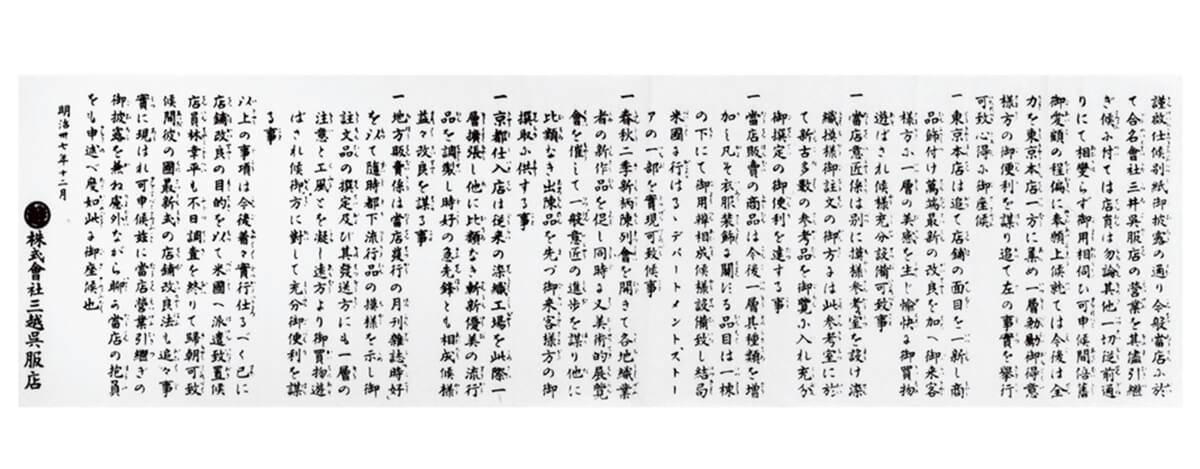 謹啟仕候別紙御披露の通り今般當店ふ於
て合名會社三井呉服店の營業を其儘引繼
ぎ候ふ付ては店員は勿論其他一切從前通
りにて相變らず御用相伺ひ可申候間倍舊
御愛顧の程偏に奉願上候就ては今後は全
力を東京本店一方に集め一層勉勵御得意
樣方の御便利を謀り追て左の事實を擧行
可致心得ふ御座候
一東京本店は追て店鋪の面目を一新し商
品飾付け萬端最新の改良を加へ御来客
樣方ふ一層の美感を生じ愉快る御買物
遊ばされ候樣充分設備可致事
一當店意匠係は別に摸樣參考室を設け染
織摸樣御註文の御方るは此參考室に於
て新古多數の參考品を御覽ふ入れ充分
御撰定の御便利を達する事
一當店販賣の商品は今後一層其種類を增
加し凡そ衣服裝飾る關する品目は一棟
の下にて御用辨相成候樣設備致し結局
米國る行はるゝデパートメントストー
アの一部を實現可致候事
一春秋二季新柄陳列會を開きて各地織業
者の新作品を促し同時る又美術的展覽
會を催して一般意匠の進步を謀り他に
比類なき出陳品を先づ御来客樣方の御
撰取ふ供する事
一京都仕入店は從来の染織工場を此際一
層擴張し他に比類なき斬新優美の流行
品を調製し時好の急先鋒とも相成候樣
益々改良を謀る事
一地方販賣係は當店發行の月刊雜誌「時好」
を以て隨時都下流行品の摸樣を示し御
註文品の撰定及び其發送方にも一層の
注意と工風とを凝し遠方より御買物遊
ばされ候御方に對して充分御便利を謀
る事
以上の事項は今後着々實行仕るべく已に
店鋪改良の目的を以て米國へ派遣致置候
店員林幸平も不日調査を終りて歸朝可致
候間彼の國最新式の店鋪改良法も追々事
實に現はれ可申候茲に當店營業引繼ぎの
御披露を兼ね菴外ながら聊う當店の抱負
をも申述べ度如此る御座候也
明治卅七年十二月
株式會社三越呉服店